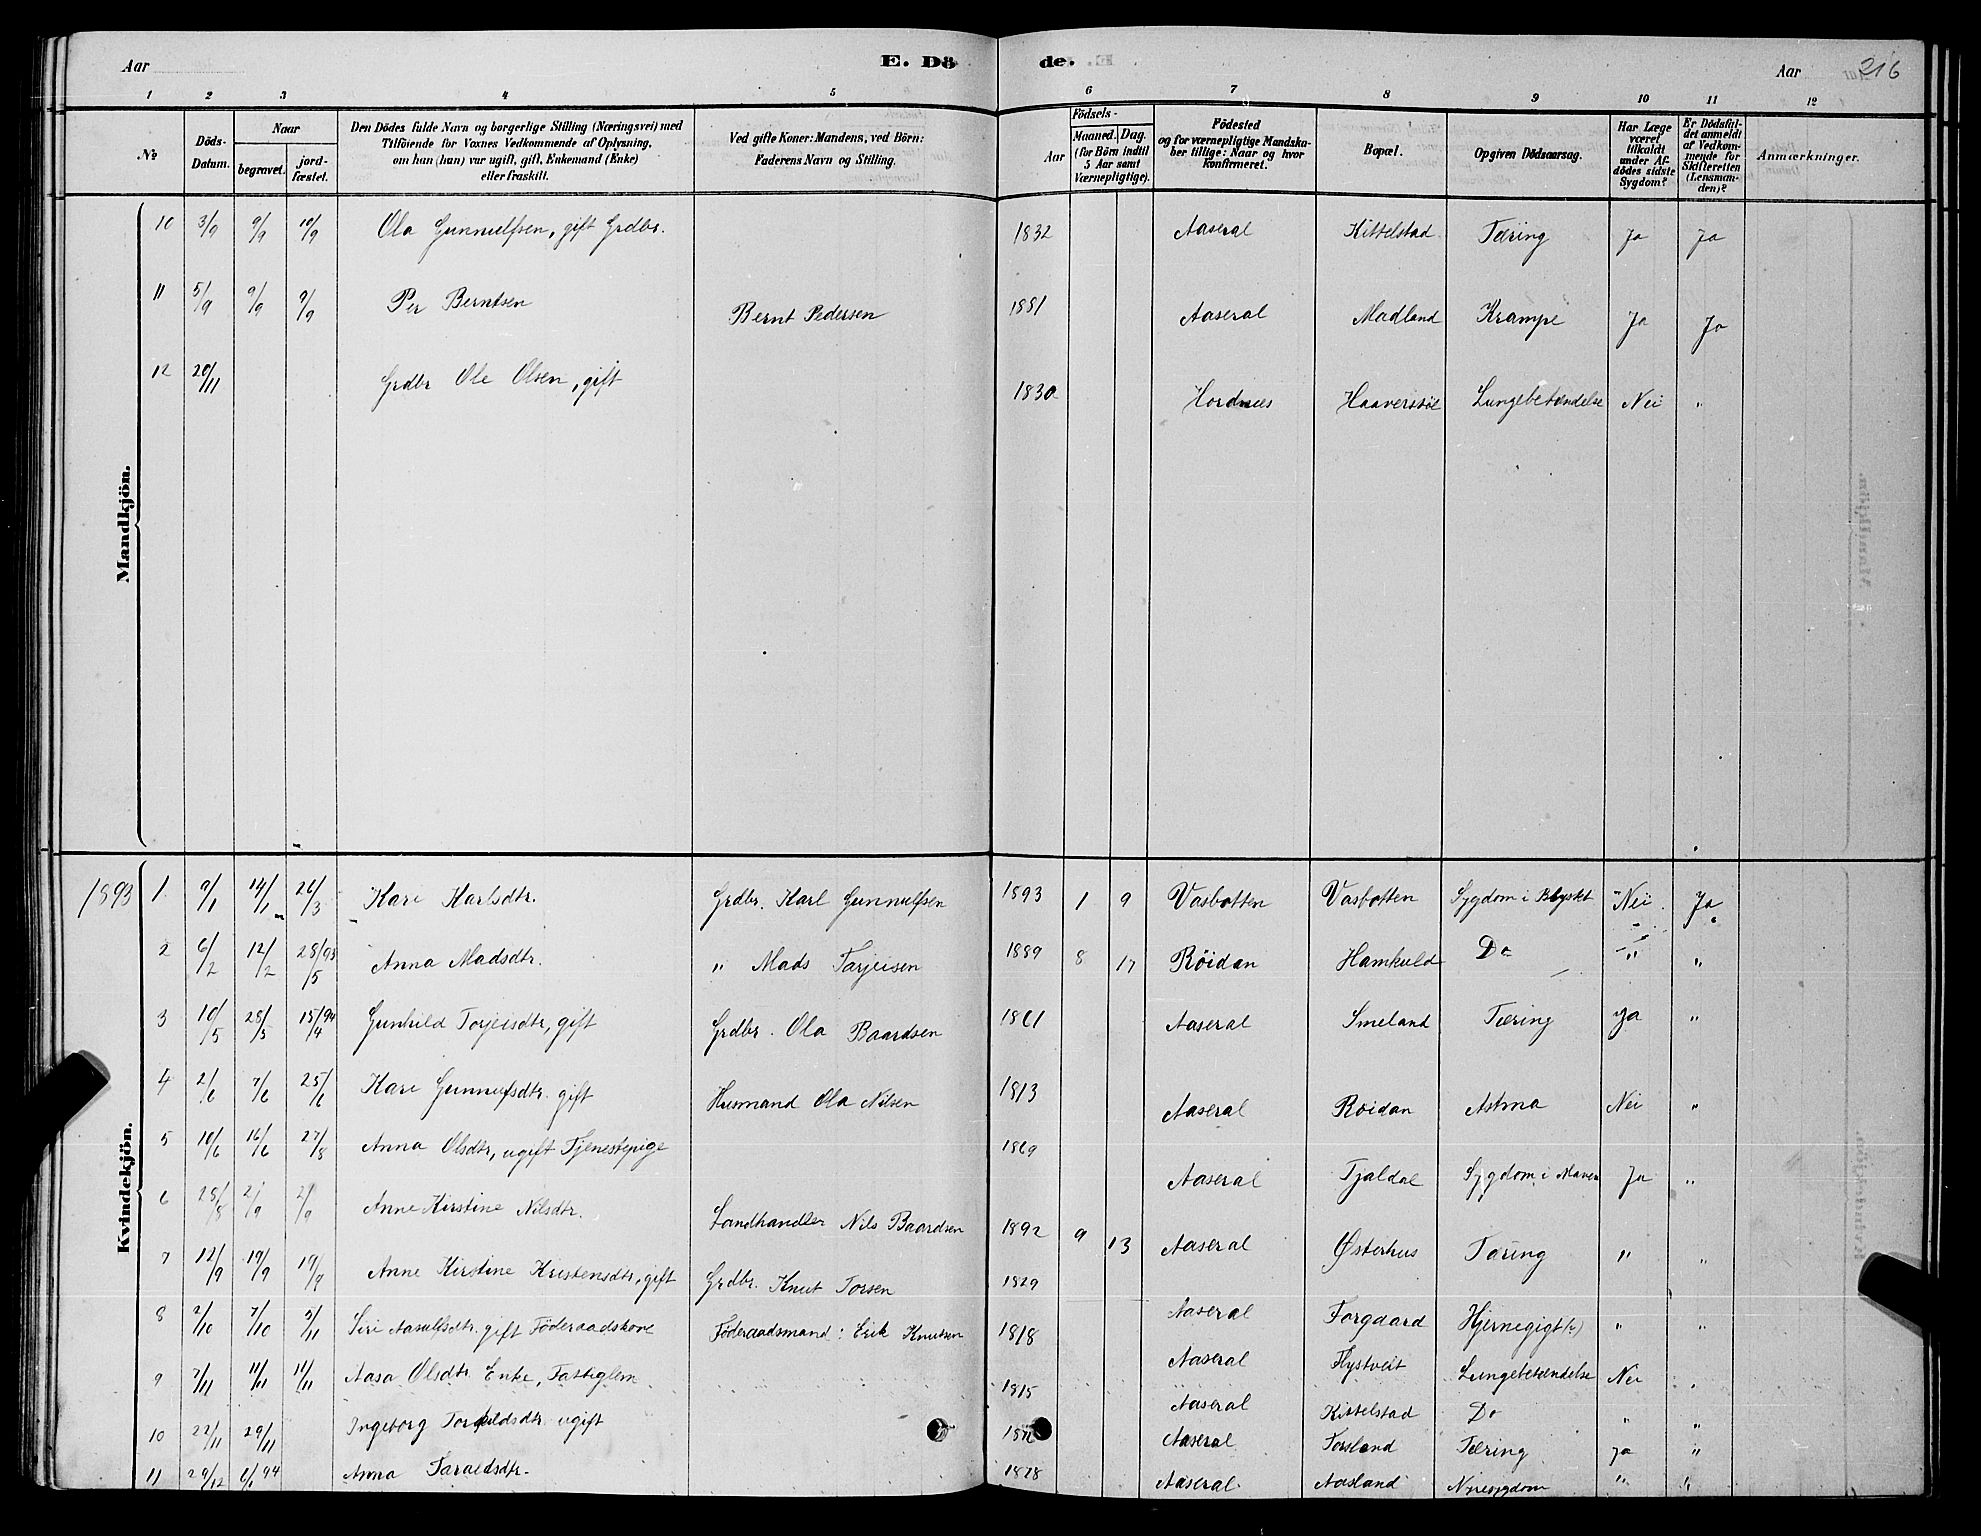 Aar
E. Dö
de.
Aar 216
1 2 3 4 5 6 7 8 9 10 11 12
No
Döds-Datum.
Naar
begravet.
jord-fæstet.
Den Dödes fulde Navn og borgerlige Stilling (Næringsvei) med
Tilföiende for Voxnes Vedkommende af Oplysning,
om han (hun) var ugift, gift, Enkemand (Enke)
eller fraskilt.
Ved gifte Koner: Mandens, ved Börn:
Faderens Navn og Stilling.
Födsels-
Aar
Maaned. Dag.
(for Börn indtil
5 Aar samt
Værnepligtige).
Födested
og for værnepligtige Mandska-
ber tillige: Naar og hvor
konfirmeret.
Bopæl.
Opgiven Dödsaarsag.
Har Læge
været
tilkaldt
under Af-
dödes sidste
Sygdom?
Er Dödsfal-
det anmeldt
af Vedkom-
mende for
Skifteretten
(Lensman-
den)?
Anmærkninger.
Mandkjön.
10 3/9 9/9 10/9 Ola Gunnulfsen, gift Grdbr. 1832 Aaseral Kittelstad Tæring Ja Ja
11 5/9 9/9 9/9 Per Berntsen Bernt Pedersen 1881 Aaseral Madland Krampe Ja Ja
12 20/11 Grdbr Ole Olsen, gift 1830 Hordnæs Haaverstöl Lungebetændelse Nei "
Kvindekjön.
1893 1. 9/1 14/1 26/3 Kari Karlsdtr. Grdbr. Karl Gunnulfsen 1893 1 9 Vasbotten Vasbotten Sygdom i Brystet Nei Ja
2 6/2 12/2 28/93/5 Anna Madsdtr. " Mads Tarjeisen 1889 8 17 Röidan Hamkold Do " "
3 10/5 28/5 15/94/4 Gunhild Torjeisdtr, gift Grdbr. Ola Baardsen 1861 Aaseral Smeland Tæring Ja "
4 2/6 7/6 25/6 Kari Gunnufsdtr. gift Husmand Ola Nilsen 1813 Aaseral Röidan Astma Nei "
5 10/6 16/6 27/8 Anna Olsdtr, ugift Tjenestepige 1869 Aaseral Tjaldal Sygdom i Maven Ja "
6 28/8 2/9 2/9 Anne Kirstine Nilsdtr. Landhandler Nils Baardsen 1892 9 13 Aaseral Østerhus Tæring " "
7 12/9 19/9 19/9 Anne Kirstine Kristensdtr, gift Grdbr. Knut Torsen 1829 Aaseral Forgaard Hjernegigt(?) " "
8 2/10 7/10 3/11 Siri Aasulfsdtr. gift Föderaadskone Föderaadsmand: Erik Knutsen 1818 Aaseral Flystveit Lungebetændelse Nei "
9 7/11 11/11 11/11 Aasa Olsdtr. Enke, Fattiglem 1815 Aaseral Kittelstad Do " "
10 22/11 29/11 Ingeborg dtr. ugift Aaseral Forsland Tæring Ja "
11 29/12 6/1 94 Anna Taraldsdtr. 1828 Aaseral Aasland Nyresygdom " "